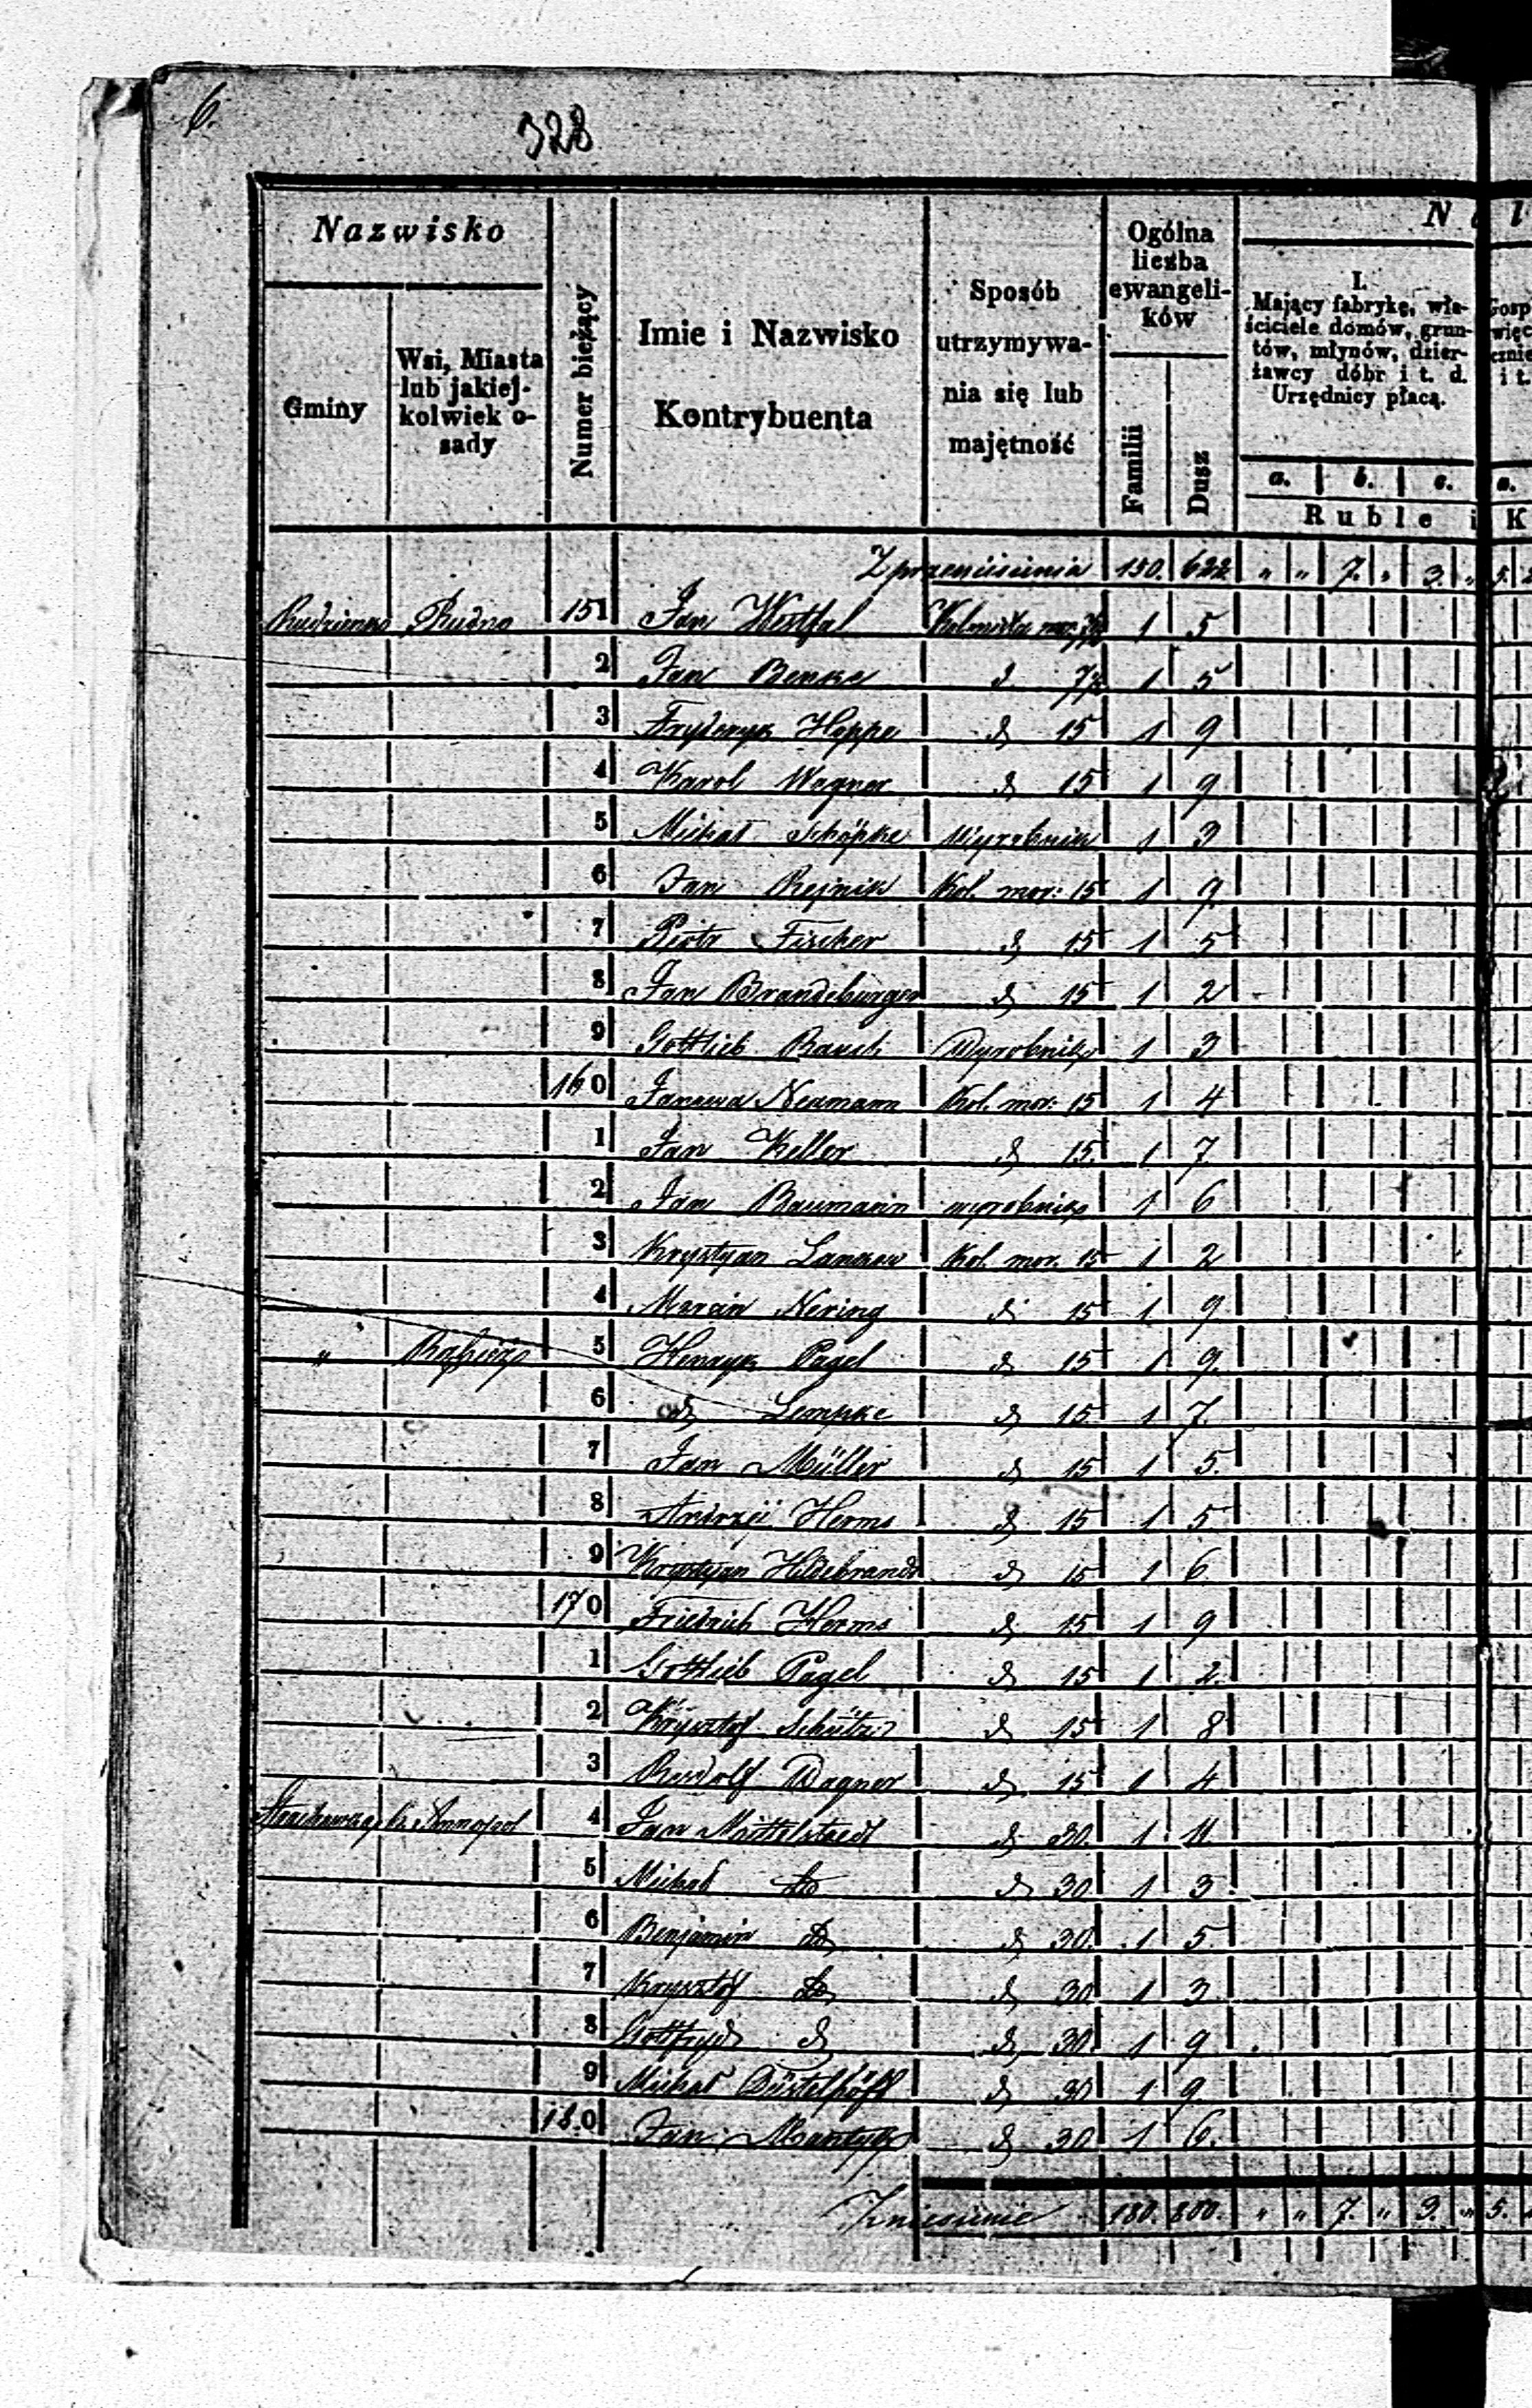 6.
328
Nazwisko
Gminy
Wsi, Miasta
lub jakiej-
kolwiek o-
sady
Numer bieżący
Imie i Nazwisko
Kontrybuenta
Sposób
utrzymywa-
nia się lub
majętność
Ogólna
liczba
ewangeli-
ków
Familii
Dusz
I.
Mający fabrykę, wła-
ściciele domów, grun-
tów, młynów, dzier-
żawcy dóbr i t. d.
Urzędnicy płacą.
a. b. c.
Ruble i K
Z przeniesienia 150. 622 " " 7. " 3. " 5.
Rudno 151 Jan Westfal Kolonista mor. 1 5
2 Jan Benke d 7½ 1 5
3 Fryderyk Hoppe d 15 1 9
4 Karol Wagner d 15 1 9
5 Michał Schöpke Wyrobnik 1 3
6 Jan Rejnik Kol. mor: 15 1 9
7 Piotr Fischer d 15 1 5
8 Jan Brandeburger d 15 1 2
9 Gottlieb Rauch Wyrobnik 1 3
160 Neumann Kol. mor: 15 1 4
1 Jan Keller d 15 1 7
2 Jan Baumann wyrobnik 1 6
3 Krystyan Kol. mor. 15 1 2
4 Marcin Nering d 15 1 9
" 5 Henryk Pagel d 15 1 9.
6 d Lempke d 15 1 7
7 Jan Müller d 15 1 5.
8 Andrzéi Herms d 15 1 5
9 Krystyan Hildebrandt d 15 1 6
170 Friedrich Herms d 15 1 9
1 Gottlieb Pagel d 15 1 2
2 Krysztof Schütz d 15 1 8
3 Rudolf Wagner d 15 1 4
Annopol 4 Jan Mittelstaedt d 30 1 11
5 Michał do d 30 1 3
6 Benjamin do d 30. 1 5
7 Krysztof do d 30 1 3
8 Gottfryd d d 30 1 9
9 Michał d 30 1 9.
180 Jan d 30 1 6.
Zniesienie 180. 800. " " 7. " 3. " 5.